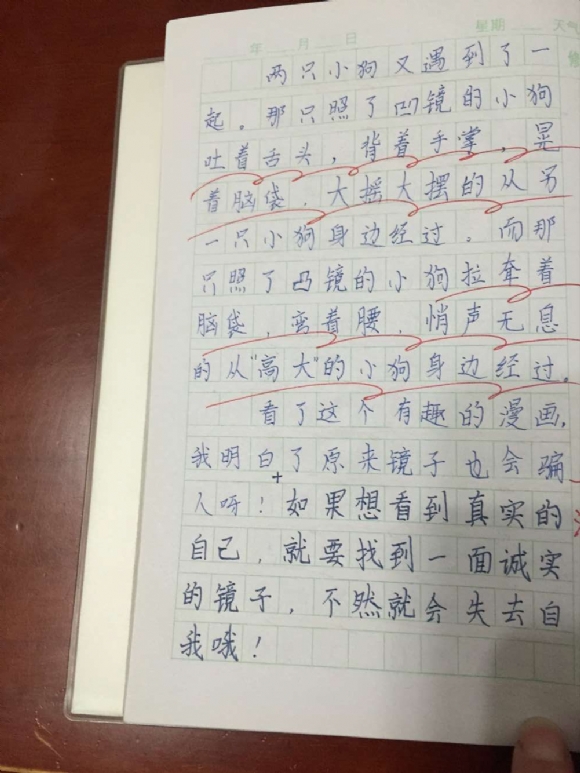 年 月 日 星期 天气
两只小狗又遇到了一
起。那只照了凹镜的小狗
吐着舌头，背着手掌，晃
着脑袋，大摇大摆的从另
一只小狗身边经过。而那
只照了凸镜的小狗拉耷着
脑袋，弯着腰，悄声无息
的从“高大”的小狗身边经过。
看了这个有趣的漫画，
我明白了原来镜子也会骗
人呀！如果想看到真实的
自己，就要找到一面诚实
的镜子，不然就会失去自
我哦！